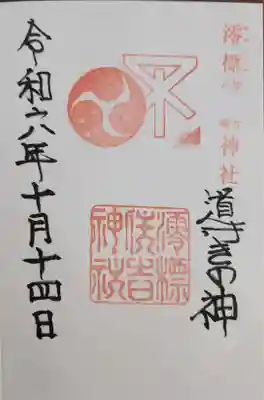 澪標
住吉
神社
の神
澪標
住吉
神社
令和六年十月十四日